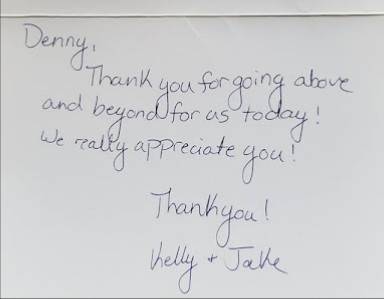 Denny,
Thank you for going above
and beyond for us today!
We really appreciate you!
Thank you!
Kelly + Jake